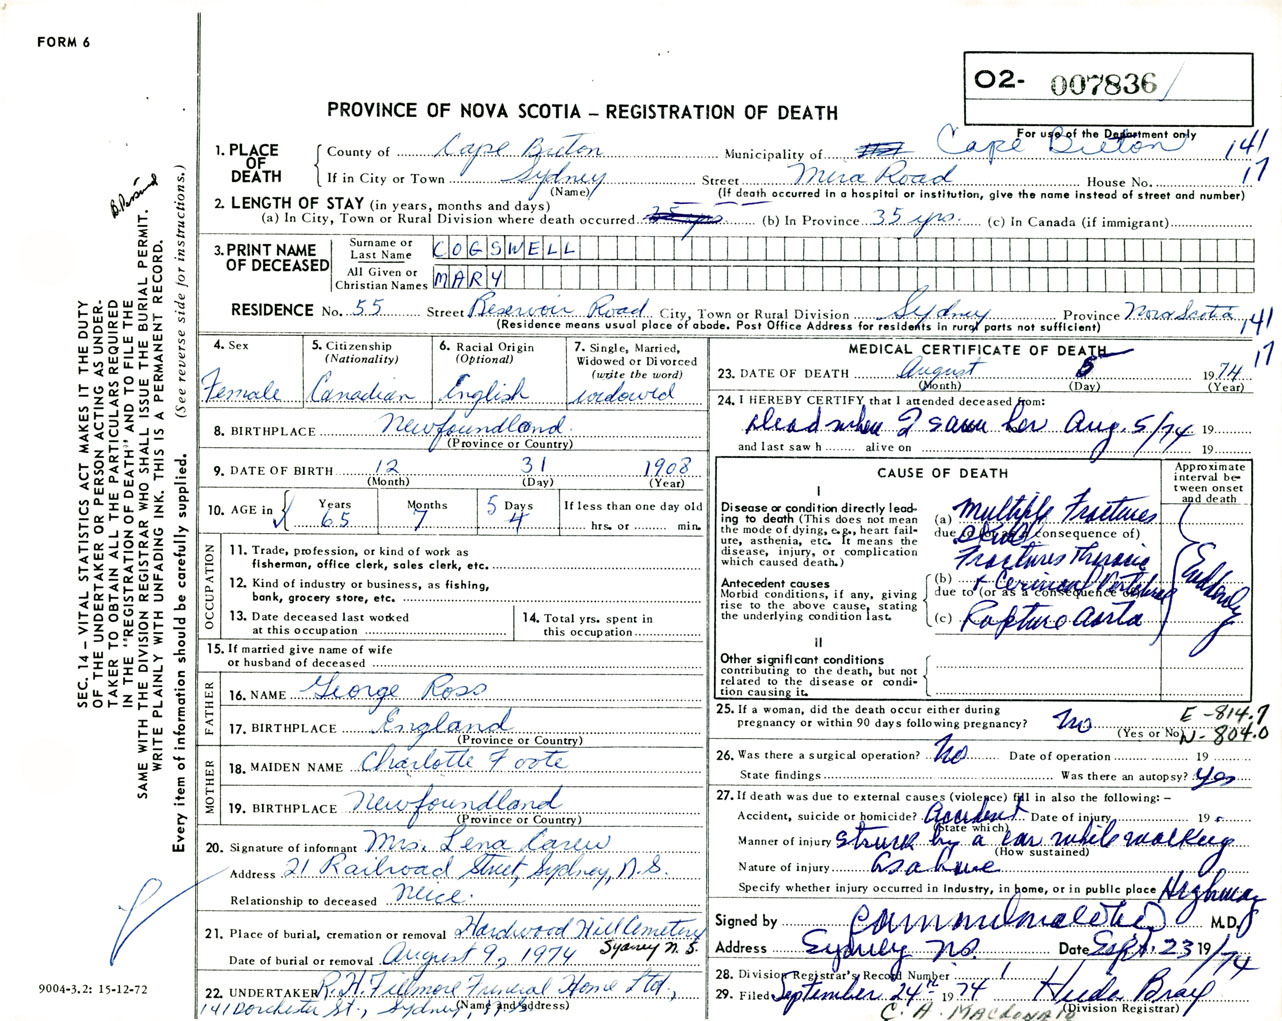 FORM 6
O2- 007836
For use of the Department only
PROVINCE OF NOVA SCOTIA – REGISTRATION OF DEATH
1. PLACE OF DEATH
County of Cape Breton Municipality of Cape Breton 141
If in City or Town Sydney Street Mira Road House No. 17
(Name) (If death occurred in a hospital or institution, give the name instead of street and number)
2. LENGTH OF STAY (in years, months and days)
(a) In City, Town or Rural Division where death occurred (b) In Province 35 yrs. (c) In Canada (if immigrant)
3. PRINT NAME OF DECEASED
Surname or Last Name COGSWELL
All Given or Christian Names MARY
RESIDENCE No. 55 Street Reservoir Road City, Town or Rural Division Sydney Province Nova Scotia 141
(Residence means usual place of abode. Post Office Address for residents in rural parts not sufficient) 17
4. Sex Female
5. Citizenship (Nationality) Canadian
6. Racial Origin (Optional) English
7. Single, Married, Widowed or Divorced (write the word) widowed
8. BIRTHPLACE Newfoundland
(Province or Country)
9. DATE OF BIRTH 12 31 1908
(Month) (Day) (Year)
10. AGE in Years 65 Months 7 Days 5 4 If less than one day old hrs. or min.
OCCUPATION
11. Trade, profession, or kind of work as
fisherman, office clerk, sales clerk, etc.
12. Kind of industry or business, as fishing,
bank, grocery store, etc.
13. Date deceased last worked
at this occupation
14. Total yrs. spent in
this occupation
15. If married give name of wife
or husband of deceased
FATHER
16. NAME George Ross
17. BIRTHPLACE England
(Province or Country)
MOTHER
18. MAIDEN NAME Charlotte Foote
19. BIRTHPLACE Newfoundland
(Province or Country)
20. Signature of informant Mrs. Lena Carew
Address 21 Railroad Street, Sydney, N.S.
Relationship to deceased Neice.
21. Place of burial, cremation or removal Hardwood Hill Cemetery
Sydney N.S.
Date of burial or removal August 9, 1974
22. UNDERTAKER R.H. Fillmore Funeral Home Ltd.,
(Name and address)
141 Dorchester St., Sydney, N.S.
MEDICAL CERTIFICATE OF DEATH
23. DATE OF DEATH August 5 1974
(Month) (Day) (Year)
24. I HEREBY CERTIFY that I attended deceased from:
Dead when I saw her Aug. 5/74 19
and last saw h alive on 19
CAUSE OF DEATH
Approximate interval between onset and death
I
Disease or condition directly leading to death (This does not mean the mode of dying, e.g., heart failure, asthenia, etc. It means the disease, injury, or complication which caused death.)
(a) Multiple Fractures
due to (or as a consequence of)
Skull
Fractures Thoracic
Antecedent causes
Morbid conditions, if any, giving rise to the above cause, stating the underlying condition last.
(b) + Cervical Vertebrae
due to (or as a consequence of)
(c) Rupture Aorta
Suddenly
II
Other significant conditions
contributing to the death, but not related to the disease or condition causing it.
25. If a woman, did the death occur either during
pregnancy or within 90 days following pregnancy? No
(Yes or No)
E-814.7
N-804.0
26. Was there a surgical operation? No Date of operation 19
State findings Was there an autopsy? yes
27. If death was due to external causes (violence) fill in also the following: –
Accident, suicide or homicide? Accident Date of injury 19
(State which)
Manner of injury Struck by a car while walking
(How sustained)
Nature of injury As above
Specify whether injury occurred in industry, in home, or in public place Highway
Signed by M.D.
Address Sydney N.S. Date Sept. 23 19/74
28. Division Registrar's Record Number 1
29. Filed September 24th 1974 Huda Bray
(Division Registrar)
C. A. MacDonald
SEC. 14 – VITAL STATISTICS ACT MAKES IT THE DUTY
OF THE UNDERTAKER OR PERSON ACTING AS UNDER-
TAKER TO OBTAIN ALL THE PARTICULARS REQUIRED
IN THE "REGISTRATION OF DEATH" AND TO FILE THE
SAME WITH THE DIVISION REGISTRAR WHO SHALL ISSUE THE BURIAL PERMIT.
WRITE PLAINLY WITH UNFADING INK. THIS IS A PERMANENT RECORD.
Every item of information should be carefully supplied. (See reverse side for instructions.)
9004-3.2: 15-12-72